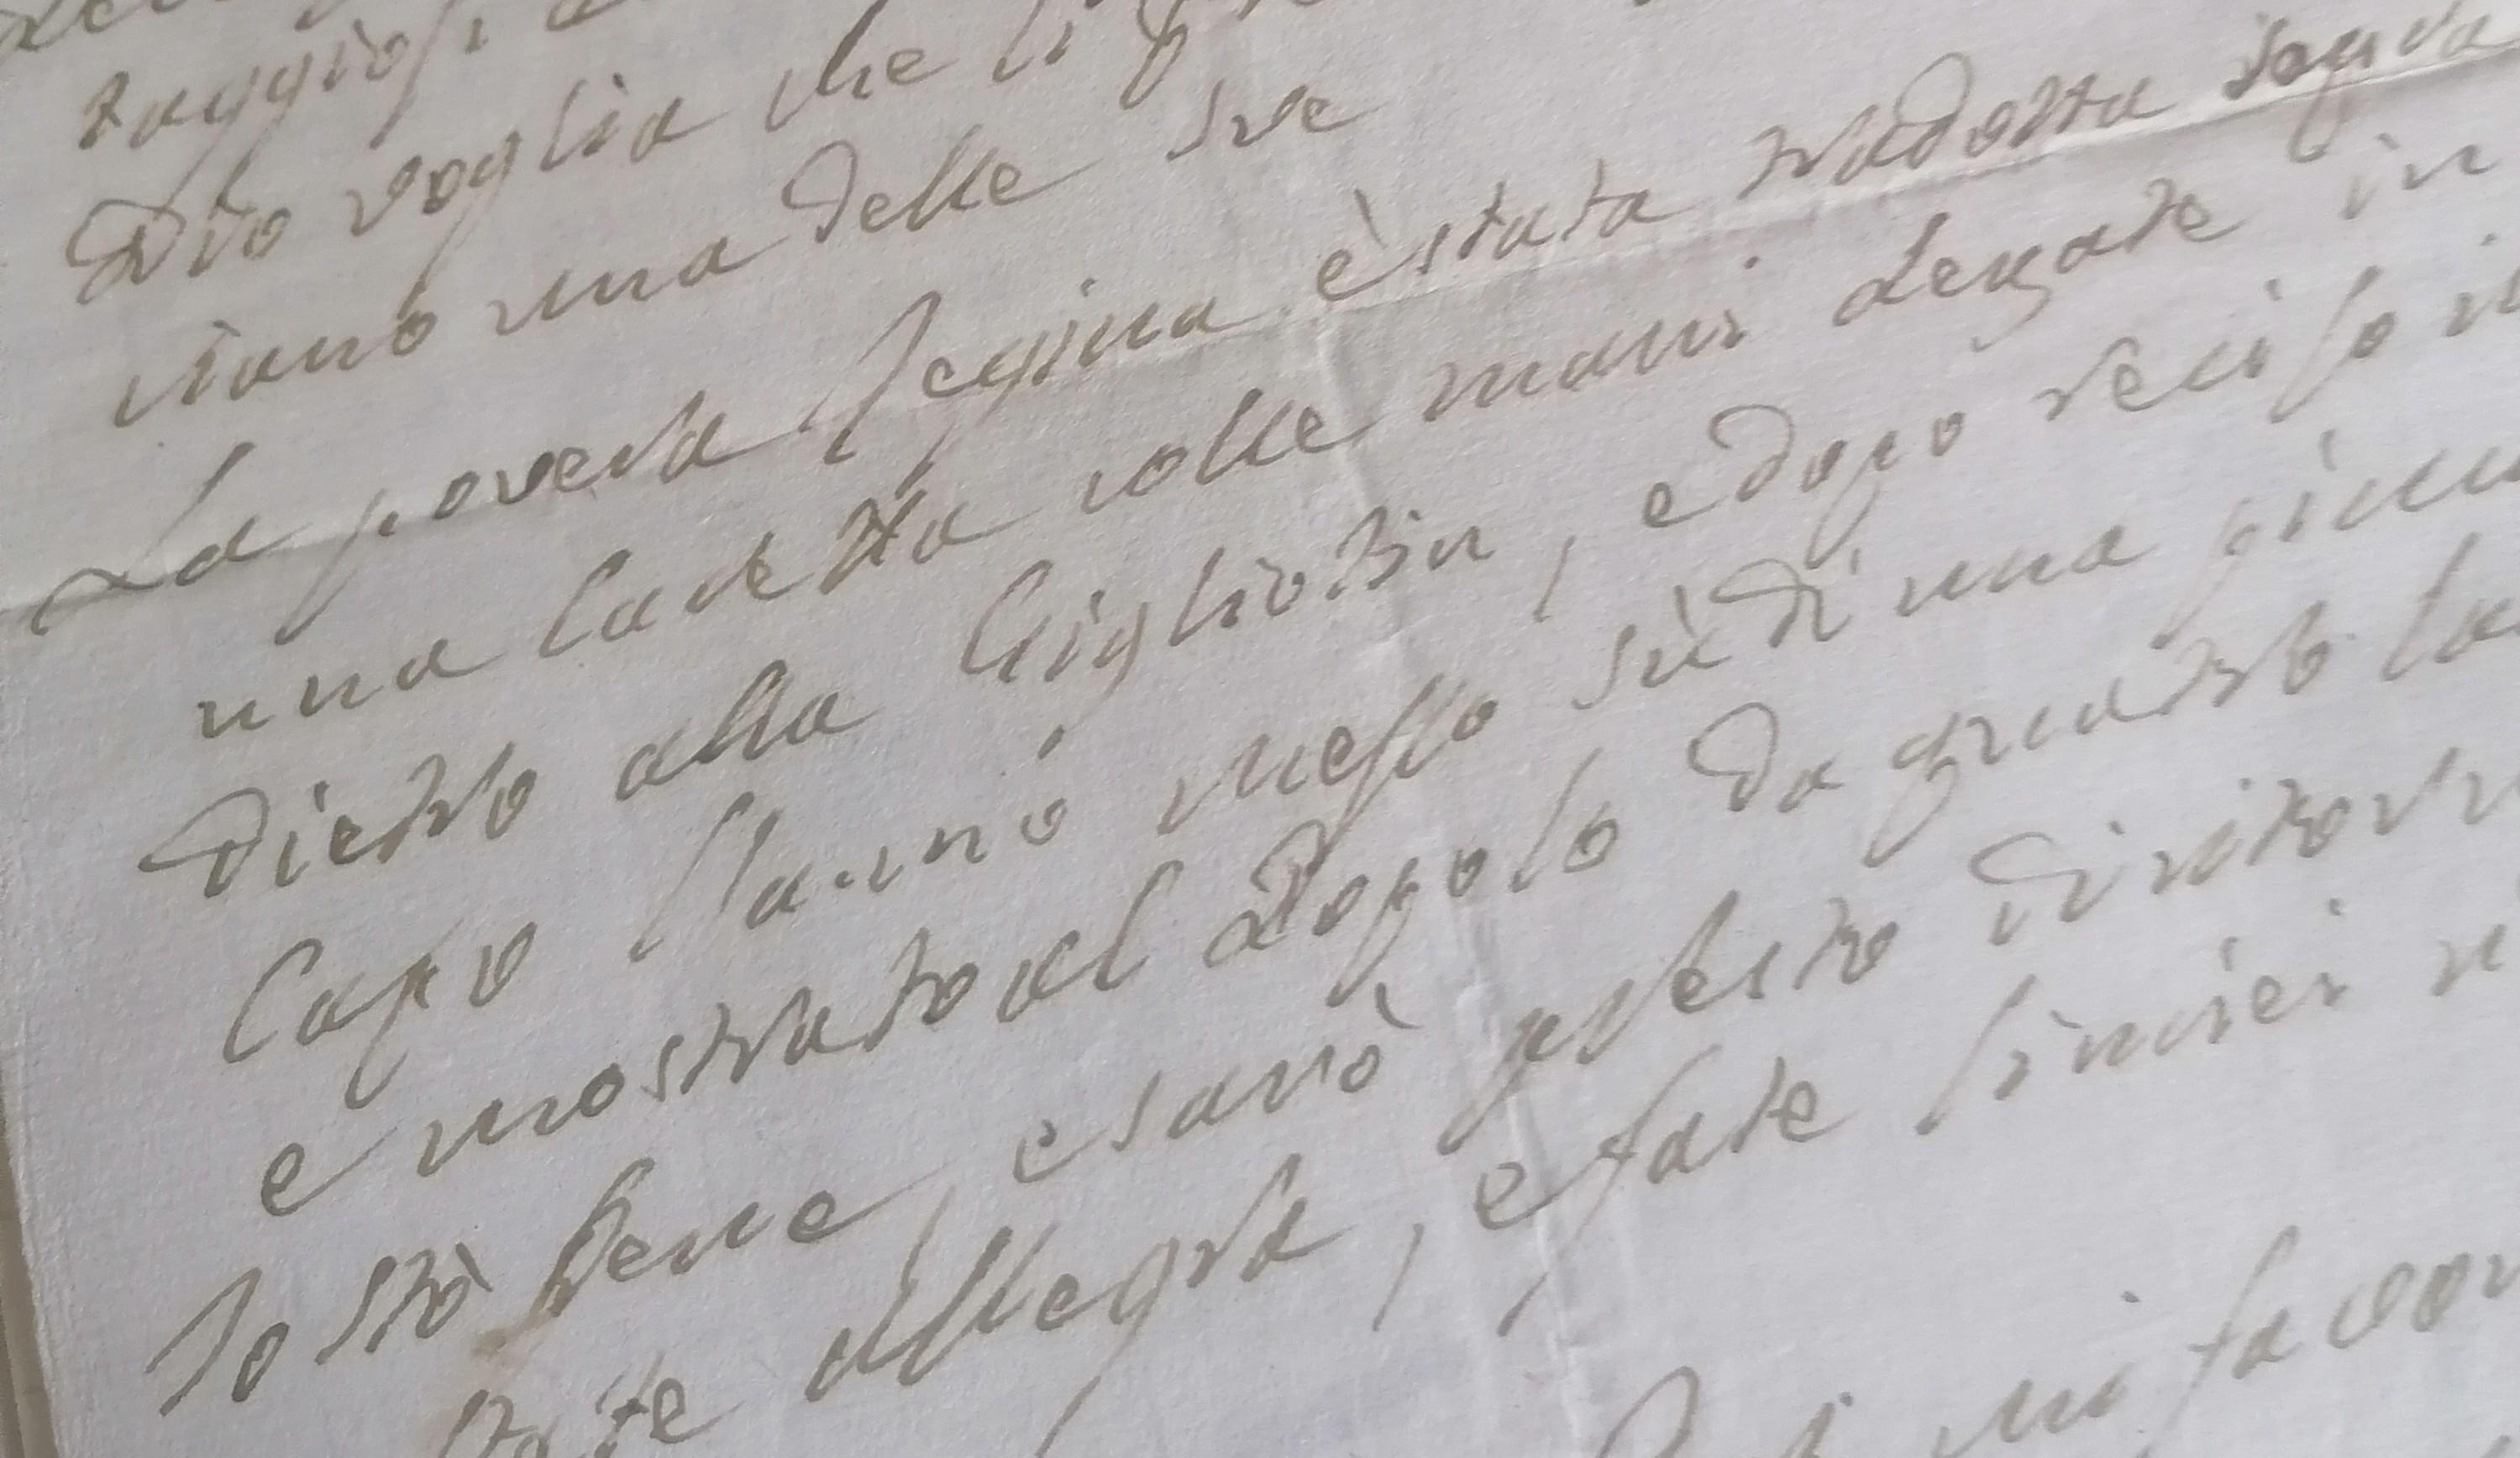 Dio voglia che li
viano una delle sue
La povera Regina è stata tradotta sopra
una Caretta colle mani Legate in
dietro alla Gigliotin, e dopo reciso il
Capo l'anno messo sù di una picca
e mostrato al Popolo da quatro la
Io stò bene, e sarò presto di ritorno
State allegra, e fate sinciei
mi favor